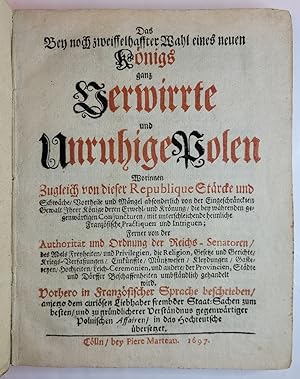 Das
Bey noch zweiffelhaffter Wahl eines neuen
Königs
ganz
Verwirrte
und
Unruhige Polen
Worinnen
Zugleich von dieser Republique Stärcke und
Schwäche/ Vortheile und Mängel absonderlich von der Eingeschränckten
Gewalt Ihrer Könige deren Erwehl- und Krönung/ die bey währenden ge-
genwärtigen Conjuncturen/ mit unterscheidende heimliche
Französische Practiquen und Intriguen;
Ferner von der
Authorität und Ordnung der Reichs-Senatoren/
des Adels Freyheiten/ und Privilegien, die Religion, Gesetze und Gerichte/
Kriegs-Verfassungen/ Einkünffte/ Müntzwesen/ Kleydungen/ Gastie-
rungen/ Hochzeiten/ Leich-Ceremonien, und andere/ der Provincien, Städte
und Dörffer Beschaffenheiten umbständlich gehandelt
wird.
Vorhero in Französischer Sprache beschrieben/
anjetzo dem curiösen Liebhaber frembder Staat-Sachen zum
besten/ und zu gründlicherer Verständnus gegenwärtiger
Polnischen Affairen/ in das Hochteutsche
übersetzet.
Cölln/ bey Piere Marteau. 1697.